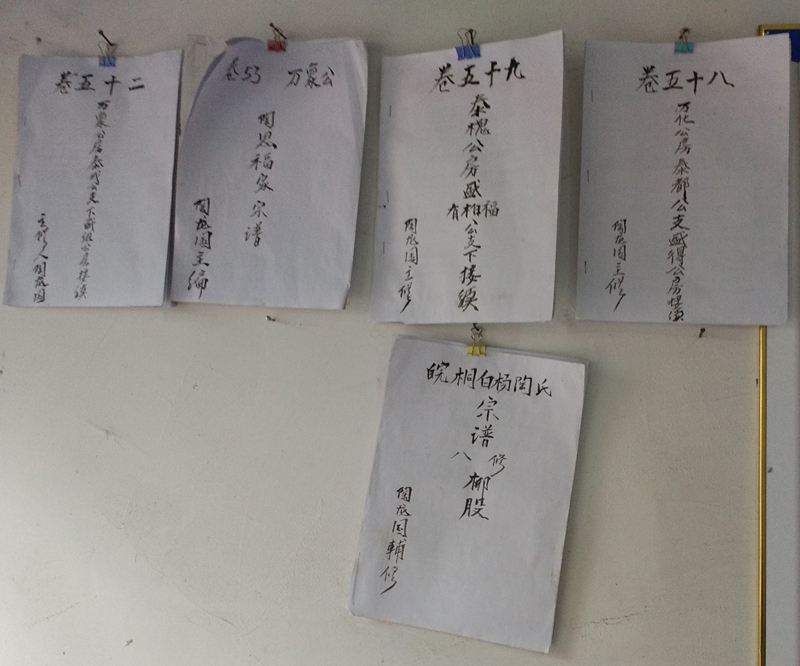 卷五十二
万象公房泰成公支下盛组公房接续
主修人陶龙国
卷53 万象公
陶恩福家宗谱
陶龙国主编
卷五十九
泰槐公房盛
有相福
公支下接续
陶龙国主修
卷五十八
万化公房泰都公支盛得公房接续
陶龙国主修
皖桐白杨陶氏
宗谱
八修
郁股
陶龙国輔修